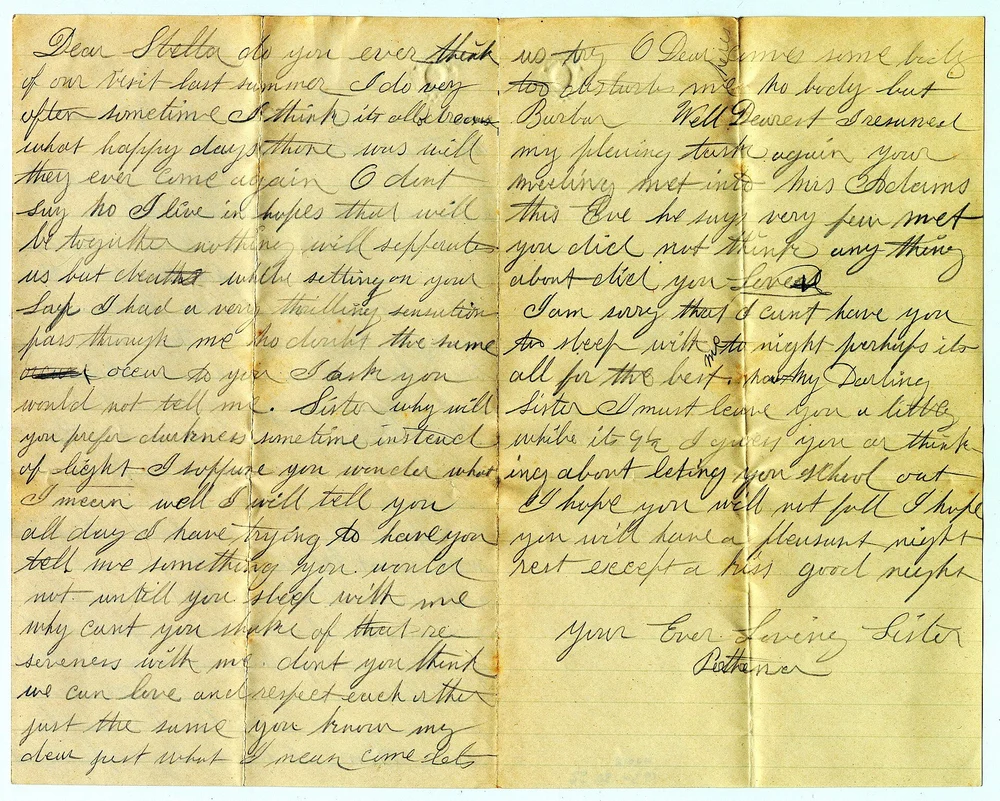 Dear Stella do you ever think
of our visit last summer I do very
often sometime I think its all a
what happy days there was will
they ever come again O dont
say no I live in hopes that will
be togather nothing will sepperate
us but death while setting on your
Lap I had a very thrilling sensation
pass through me no doubt the same
occur to you I ask you
would not tell me. Sister why will
you prefer darkness sometime instead
of light I suppose you wonder what
I mean well I will tell you
all day I have trying to have you
tell me something you would
not untill you sleep with me
why cant you shake of that re
serveness with me. dont you think
we can love and respect each other
just the same you know my
dear just what I mean come lets
us try O Dear here comes some body
too disturb me no body but
Barbar Well Dearest I resumed
my plesing task again your
meeting met into Mrs Adams
this Eve he says very few met
you did not think any thing
about did you Loved
I am sorry that I cant have you
to sleep with me to night perhaps its
all for the best My Darling
Sister I must leave you a little
while its 9½ I guess you ar think
ing about leting you school out
I hope you will not fall I hope
you will have a pleasant night
rest except a kiss good neight
Your Ever Loving Sister